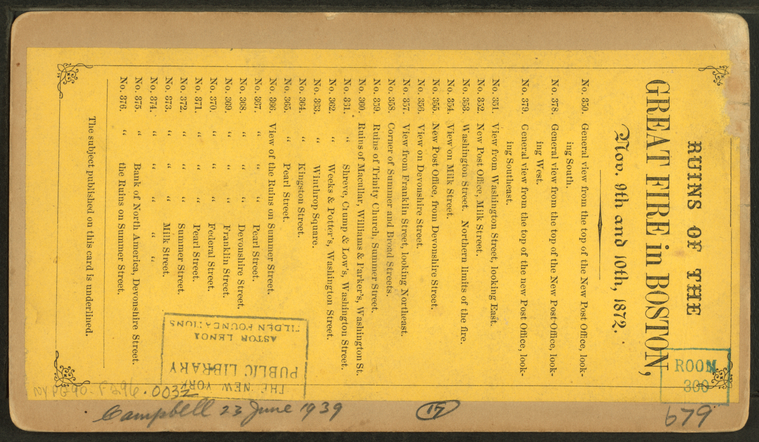 RUINS OF THE
GREAT FIRE in BOSTON,
Nov. 9th and 10th, 1872.
No. 350. General view from the top of the New Post Office, look-
ing South.
No. 378. General view from the top of the New Post Office, look-
ing West.
No. 379. General view from the top of the new Post Office, look-
ing Southeast.
No. 351. View from Washington Street, looking East.
No. 352. New Post Office, Milk Street.
No. 353. Washington Street. Northern limits of the fire.
No. 354. View on Milk Street.
No. 355. New Post Office, from Devonshire Street.
No. 356. View on Devonshire Street.
No. 357. View from Franklin Street, looking Northeast.
No. 358. Corner of Summer and Broad Streets.
No. 359. Ruins of Trinity Church, Summer Street.
No. 360. Ruins of Macullar, Williams & Parker's, Washington St.
No. 331. " Shreve, Crump & Low's, Washington Street.
No. 362. " Weeks & Potter's, Washington Street.
No. 333. " Winthrop Square.
No. 364. " Kingston Street.
No. 365. " Pearl Street.
No. 366. View of the Ruins on Summer Street.
No. 367. " " " " Pearl Street.
No. 368. " " " " Devonshire Street.
No. 369. " " " " Franklin Street.
No. 370. " " " " Federal Street.
No. 371. " " " " Pearl Street.
No. 372. " " " " Summer Street.
No. 373. " " " " Milk Street.
No. 374. " " " " "
No. 375. " Bank of North America, Devonshire Street.
No. 376. " the Ruins on Summer Street.
The subject published on this card is underlined.
THE NEW YORK
PUBLIC LIBRARY
ASTOR LENOX
TILDEN FOUNDATIONS
ROOM
300
NYPG90-F296.0032
Campbell 23 June 1939
17
679